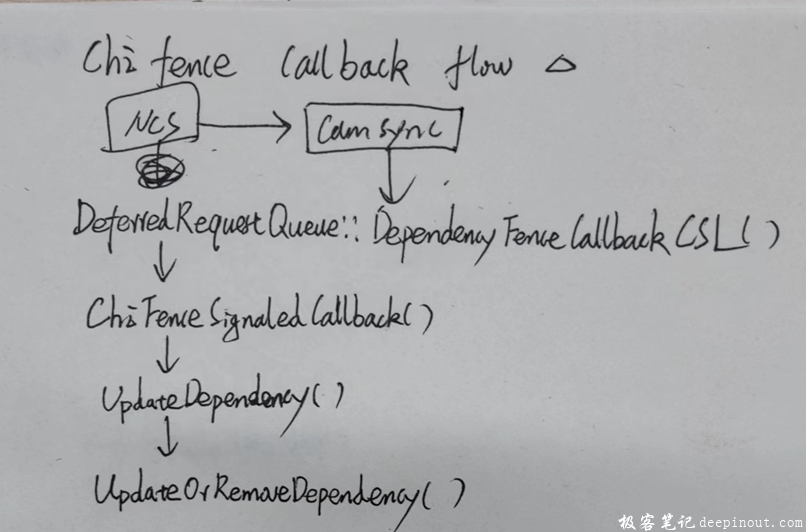 Chi fence Callback flow △
NCS → Camsync
DeferredRequestQueue::DependencyFenceCallbackCSL()
ChiFenceSignaledCallback()
UpdateDependency()
UpdateOrRemoveDependency()
极客笔记deepinout.com